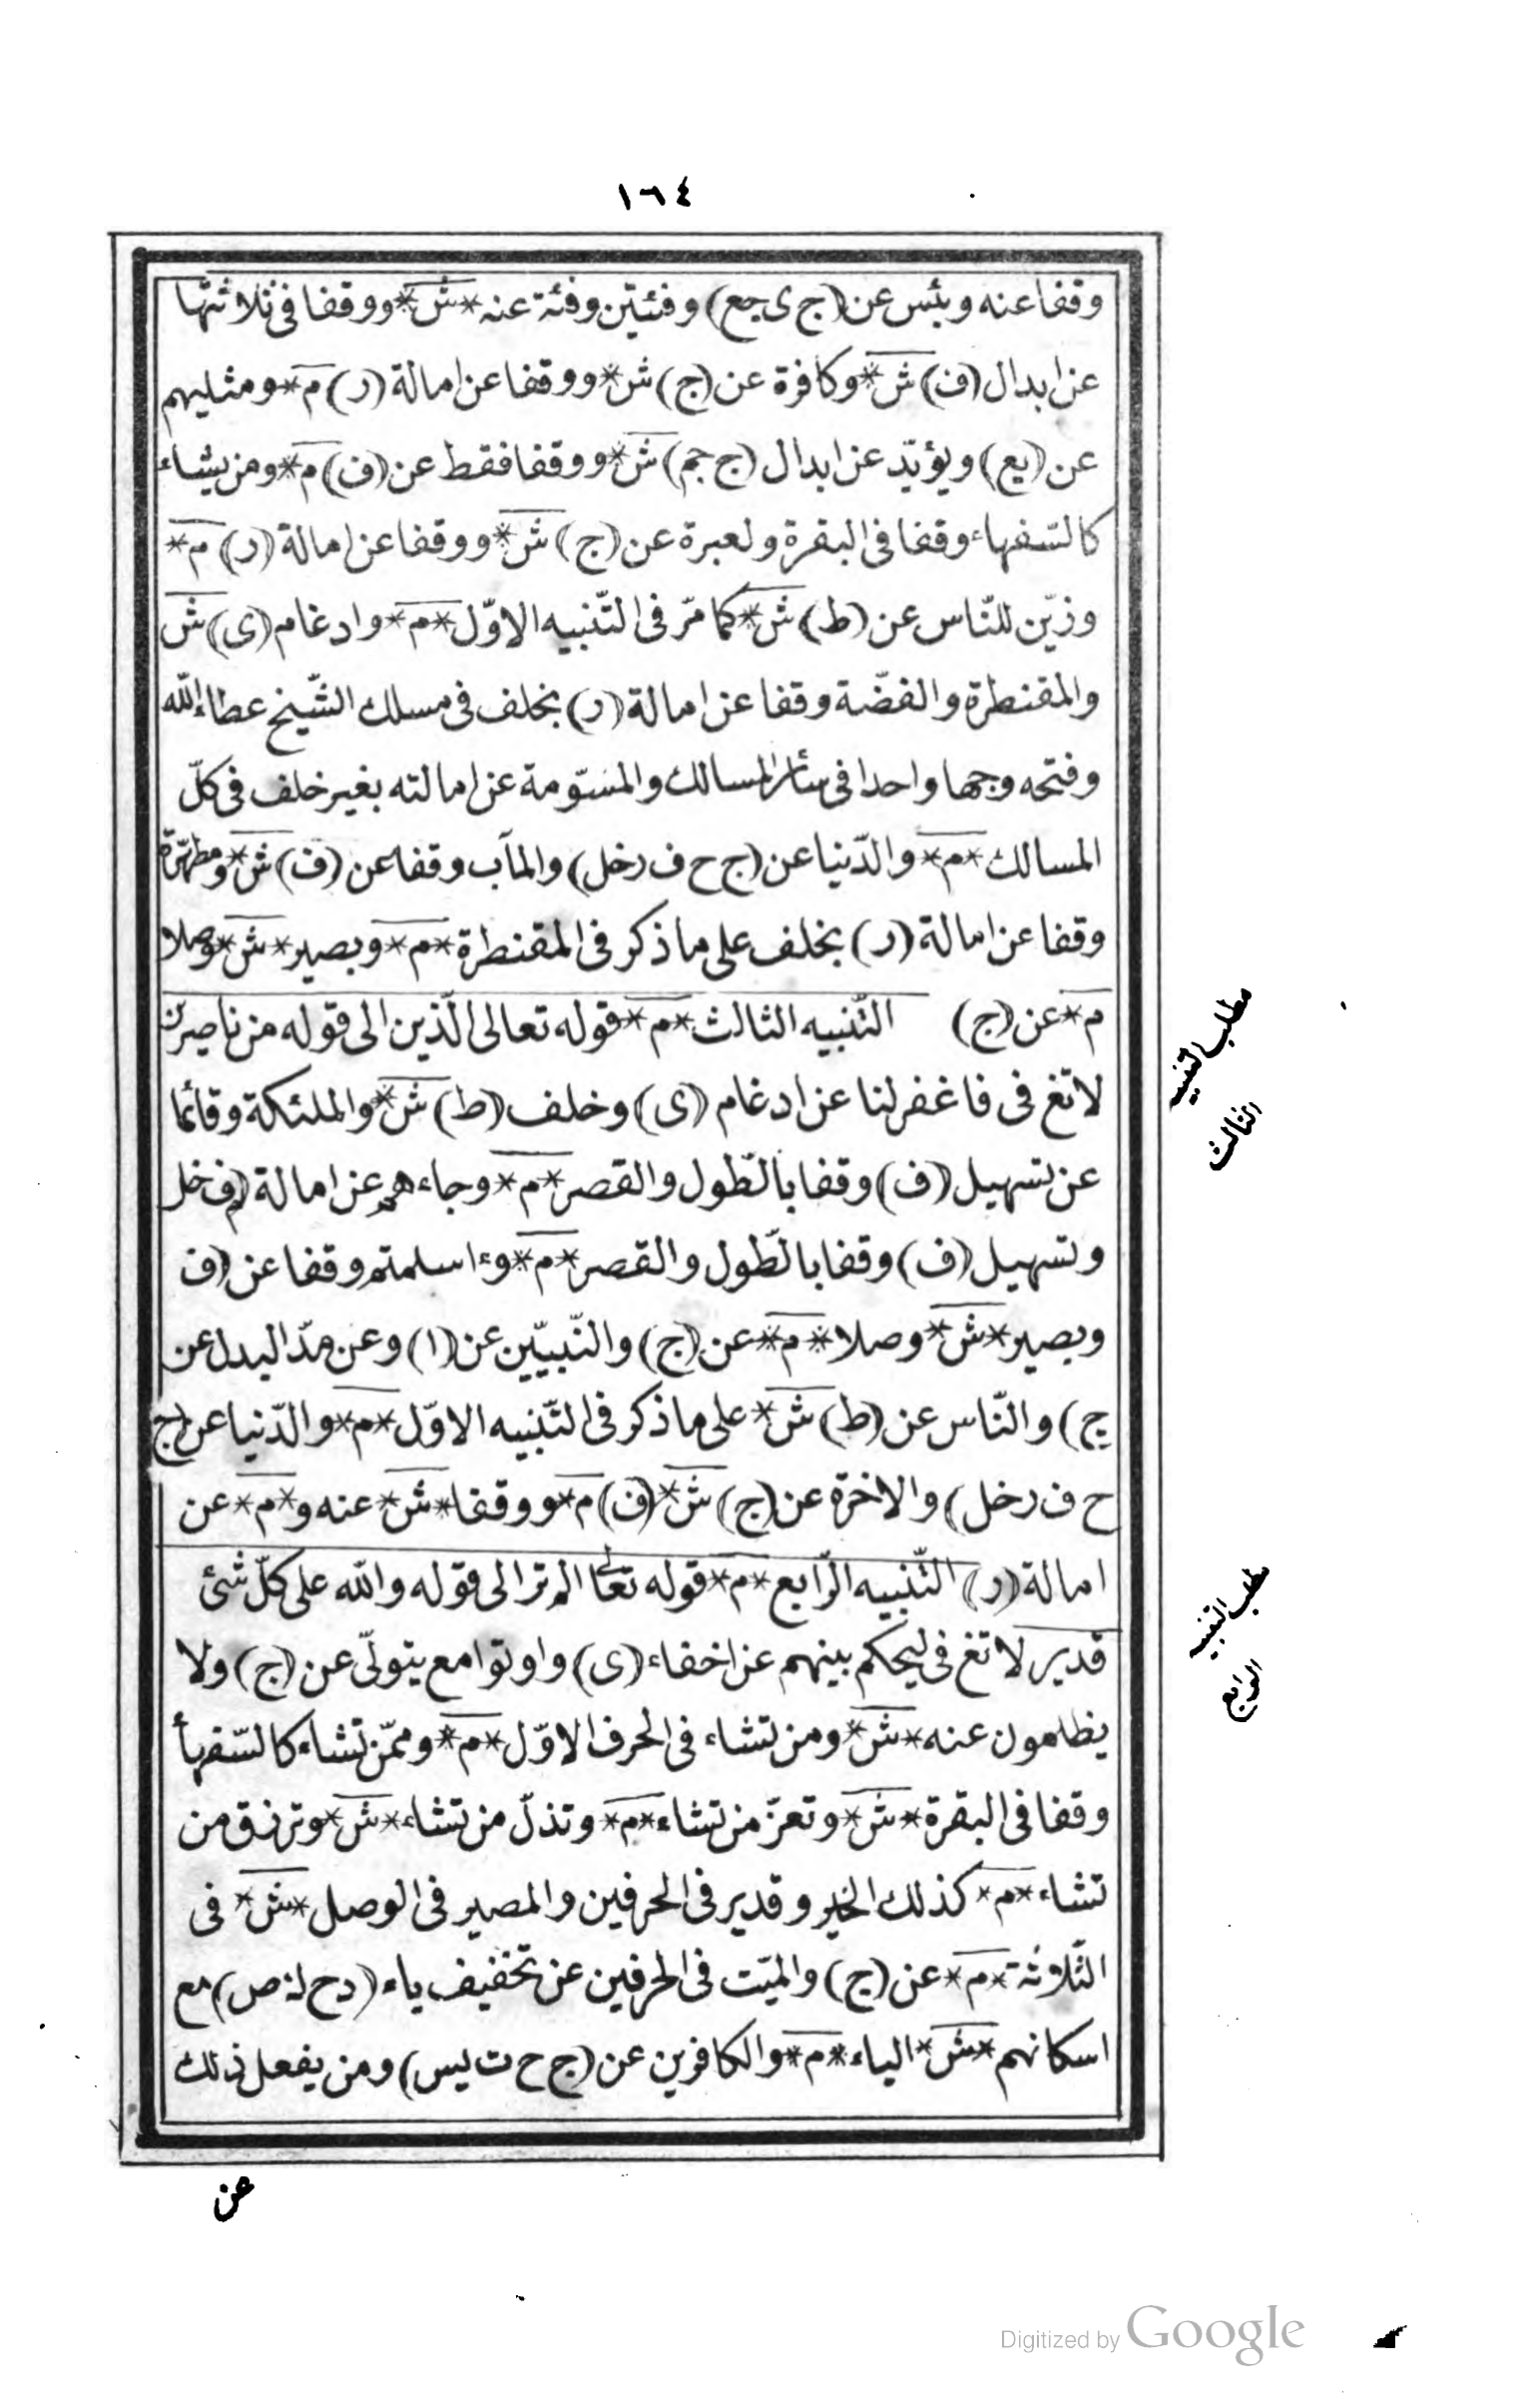 ١٦٤
وقفا عنه وبئس عن (ج ى جع) وفئتين وفئة عنه * ش * ووقفا فى ثلاثتها
عن ابدال (ف) ش * وكافرة عن (ج) ش * ووقفا عن امالة (ر) م * ومثليهم
عن (يع) ويؤيّد عن ابدال (ج جم) ش * ووقفا فقط عن (ف) م * ومن يشاء
كالسّفهاء وقفا فى البقرة ولعبرة عن (ج) ش * ووقفا عن امالة (ر) م *
وزيّن للنّاس عن (ط) ش * كما مرّ فى التّنبيه الاوّل * م * وادغام (ى) ش
والمقنطرة والفضّة وقفا عن امالة (ر) بخلف فى مسلك الشّيخ عطاء الله
وفتحه وجها واحدا فى سائر المسالك والمسوّمة عن امالته بغير خلف فى كلّ
المسالك * م * والدّنيا عن (ج ح ف ر خل) والمآب وقفا عن (ف) ش * ومطهّرة
وقفا عن امالة (ر) بخلف على ما ذكر فى المقنطرة * م * وبصير * ش * وصلا
م * عن (ج) التّنبيه الثالث * م * قوله تعالى الّذين الى قوله من ناصرين
لا تغ فى فاغفر لنا عن ادغام (ى) وخلف (ط) ش * والملئكة وقائما
عن تسهيل (ف) وقفا بالطّول والقصر * م * وجاءهم عن امالة (م ف خل
وتسهيل (ف) وقفا بالطّول والقصر * م * وءاسلمتم وقفا عن (ف
وبصير * ش * وصلا * م * عن (ج) والنّبيّين عن (ا) وعن مدّ البدل عن
ج) والنّاس عن (ط) ش * على ما ذكر فى التّنبيه الاوّل * م * والدّنيا عن (ج
ح ف ر خل) والاخرة عن (ج) ش * (ف) م * ووقفا * ش * عنه و * م * عن
امالة (ر) التّنبيه الرّابع * م * قوله تعالى الم تر الى قوله والله على كلّ شئ
قدير لا تغ فى ليحكم بينهم عن اخفاء (ى) واوتوا مع يتولّى عن (ج) ولا
يظلمون عنه * ش * ومن تشاء فى الحرف الاوّل * م * وممّن تشاء كالسّفهأ
وقفا فى البقرة * ش * وتعزّ من تشاء * م * وتذلّ من تشاء * ش * وترزق من
تشاء * م * كذلك الخير وقدير فى الحرفين والمصير فى الوصل * ش * فى
الثّلاثة * م * عن (ج) والميّت فى الحرفين عن تخفيف ياء (د ح لـ ص) مع
اسكانهم * ش * الياء * م * والكافرين عن (ج ح ت يس) ومن يفعل ذلك
مطلب التنبيه
الثالث
مطلب التنبيه
الرابع
عن
Digitized by Google